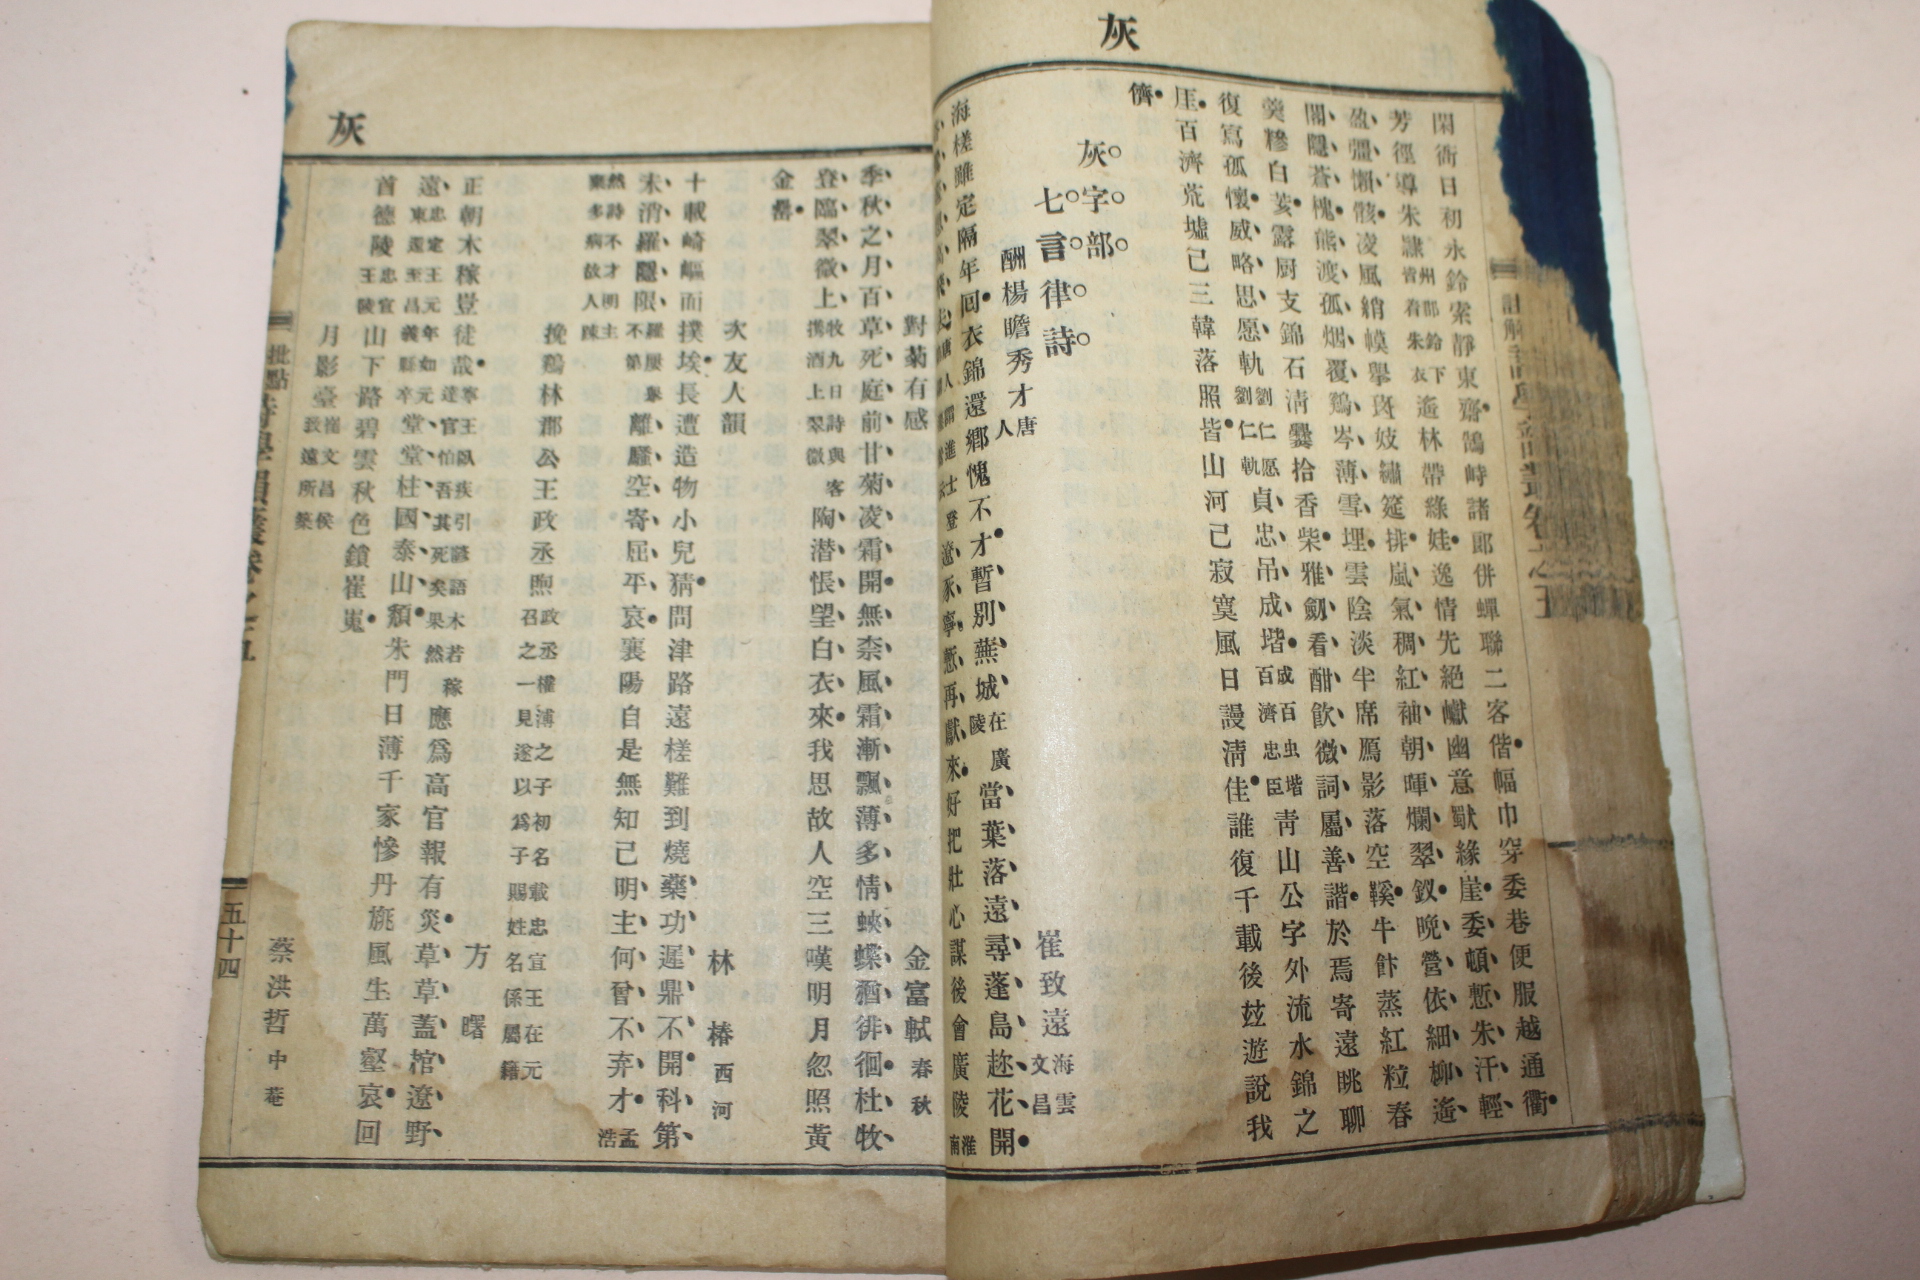 灰
閑衙日初永鈴索靜東齋鵠峙諸郎併蟬聯二客偕幅巾穿委巷便服越通衢
芳徑導朱隷遙林帶綠娃逸情先絕巘幽意獸緣崖委頓慙朱汗輕
盈彊懶骸凌風綃幙擧斑妓繡筵排嵐氣稠紅袖朝暉爛翠釵晩營依細柳遙
闇隱蒼槐熊渡孤烟覆鷄岑薄雪埋雲陰淡半席鴈影落空鞵牛飰蒸紅粒春
羹糝白荄露厨支錦石淸爨拾香柴雅劒看酣飮微詞屬善諧於焉寄遠眺聊
復寫孤懷威略思愿軌劉仁愿劉仁軌貞忠吊成堦成百虫堦百濟忠臣靑山公字外流水錦之
厓百濟荒墟已三韓落照皆山河已寂寞風日謾淸佳誰復千載後玆遊說我
儕
灰字部
七言律詩
酬楊瞻秀才唐人 崔致遠海雲文昌
海槎雖定隔年回衣錦還鄕愧不才暫別蕪城在廣陵當葉落遠尋蓬島趂花開
再獻來好把壯心謀後會廣陵淮南
灰
對菊有感 金富軾春秋
季秋之月百草死庭前甘菊凌霜開無柰風霜漸飄薄多情蛺蝶猶徘徊杜牧
登臨翠微上牧九日詩與客携酒上翠微陶潜悵望白衣來我思故人空三嘆明月忽照黃
金罍
次友人韻 林椿西河
十載崎嶇而撲埃長遭造物小兒猜問津路遠槎難到燒藥功遲鼎不開科第
未消羅隱限羅屢擧不第離騷空寄屈平哀襄陽自是無知己明主何曾不弃才孟浩
然詩不才明主棄多病故人踈
挽鷄林郡公王政丞煦政丞權溥之子初名載忠宣王在元召之一見遂以爲子賜姓名係屬籍
方曙
正朝木稼豈徒哉寧王臥疾引諺語木若稼達官怕吾其死矣果然應爲高官報有災草草蓋棺遼野
遠忠定王元年如元東還至昌義縣卒堂堂柱國泰山頹朱門日薄千家慘丹旐風生萬壑哀回
首德陵忠宣王陵山下路碧雲秋色鎖崔嵬
月影臺崔文昌侯致遠所築 蔡洪哲中菴
五十四